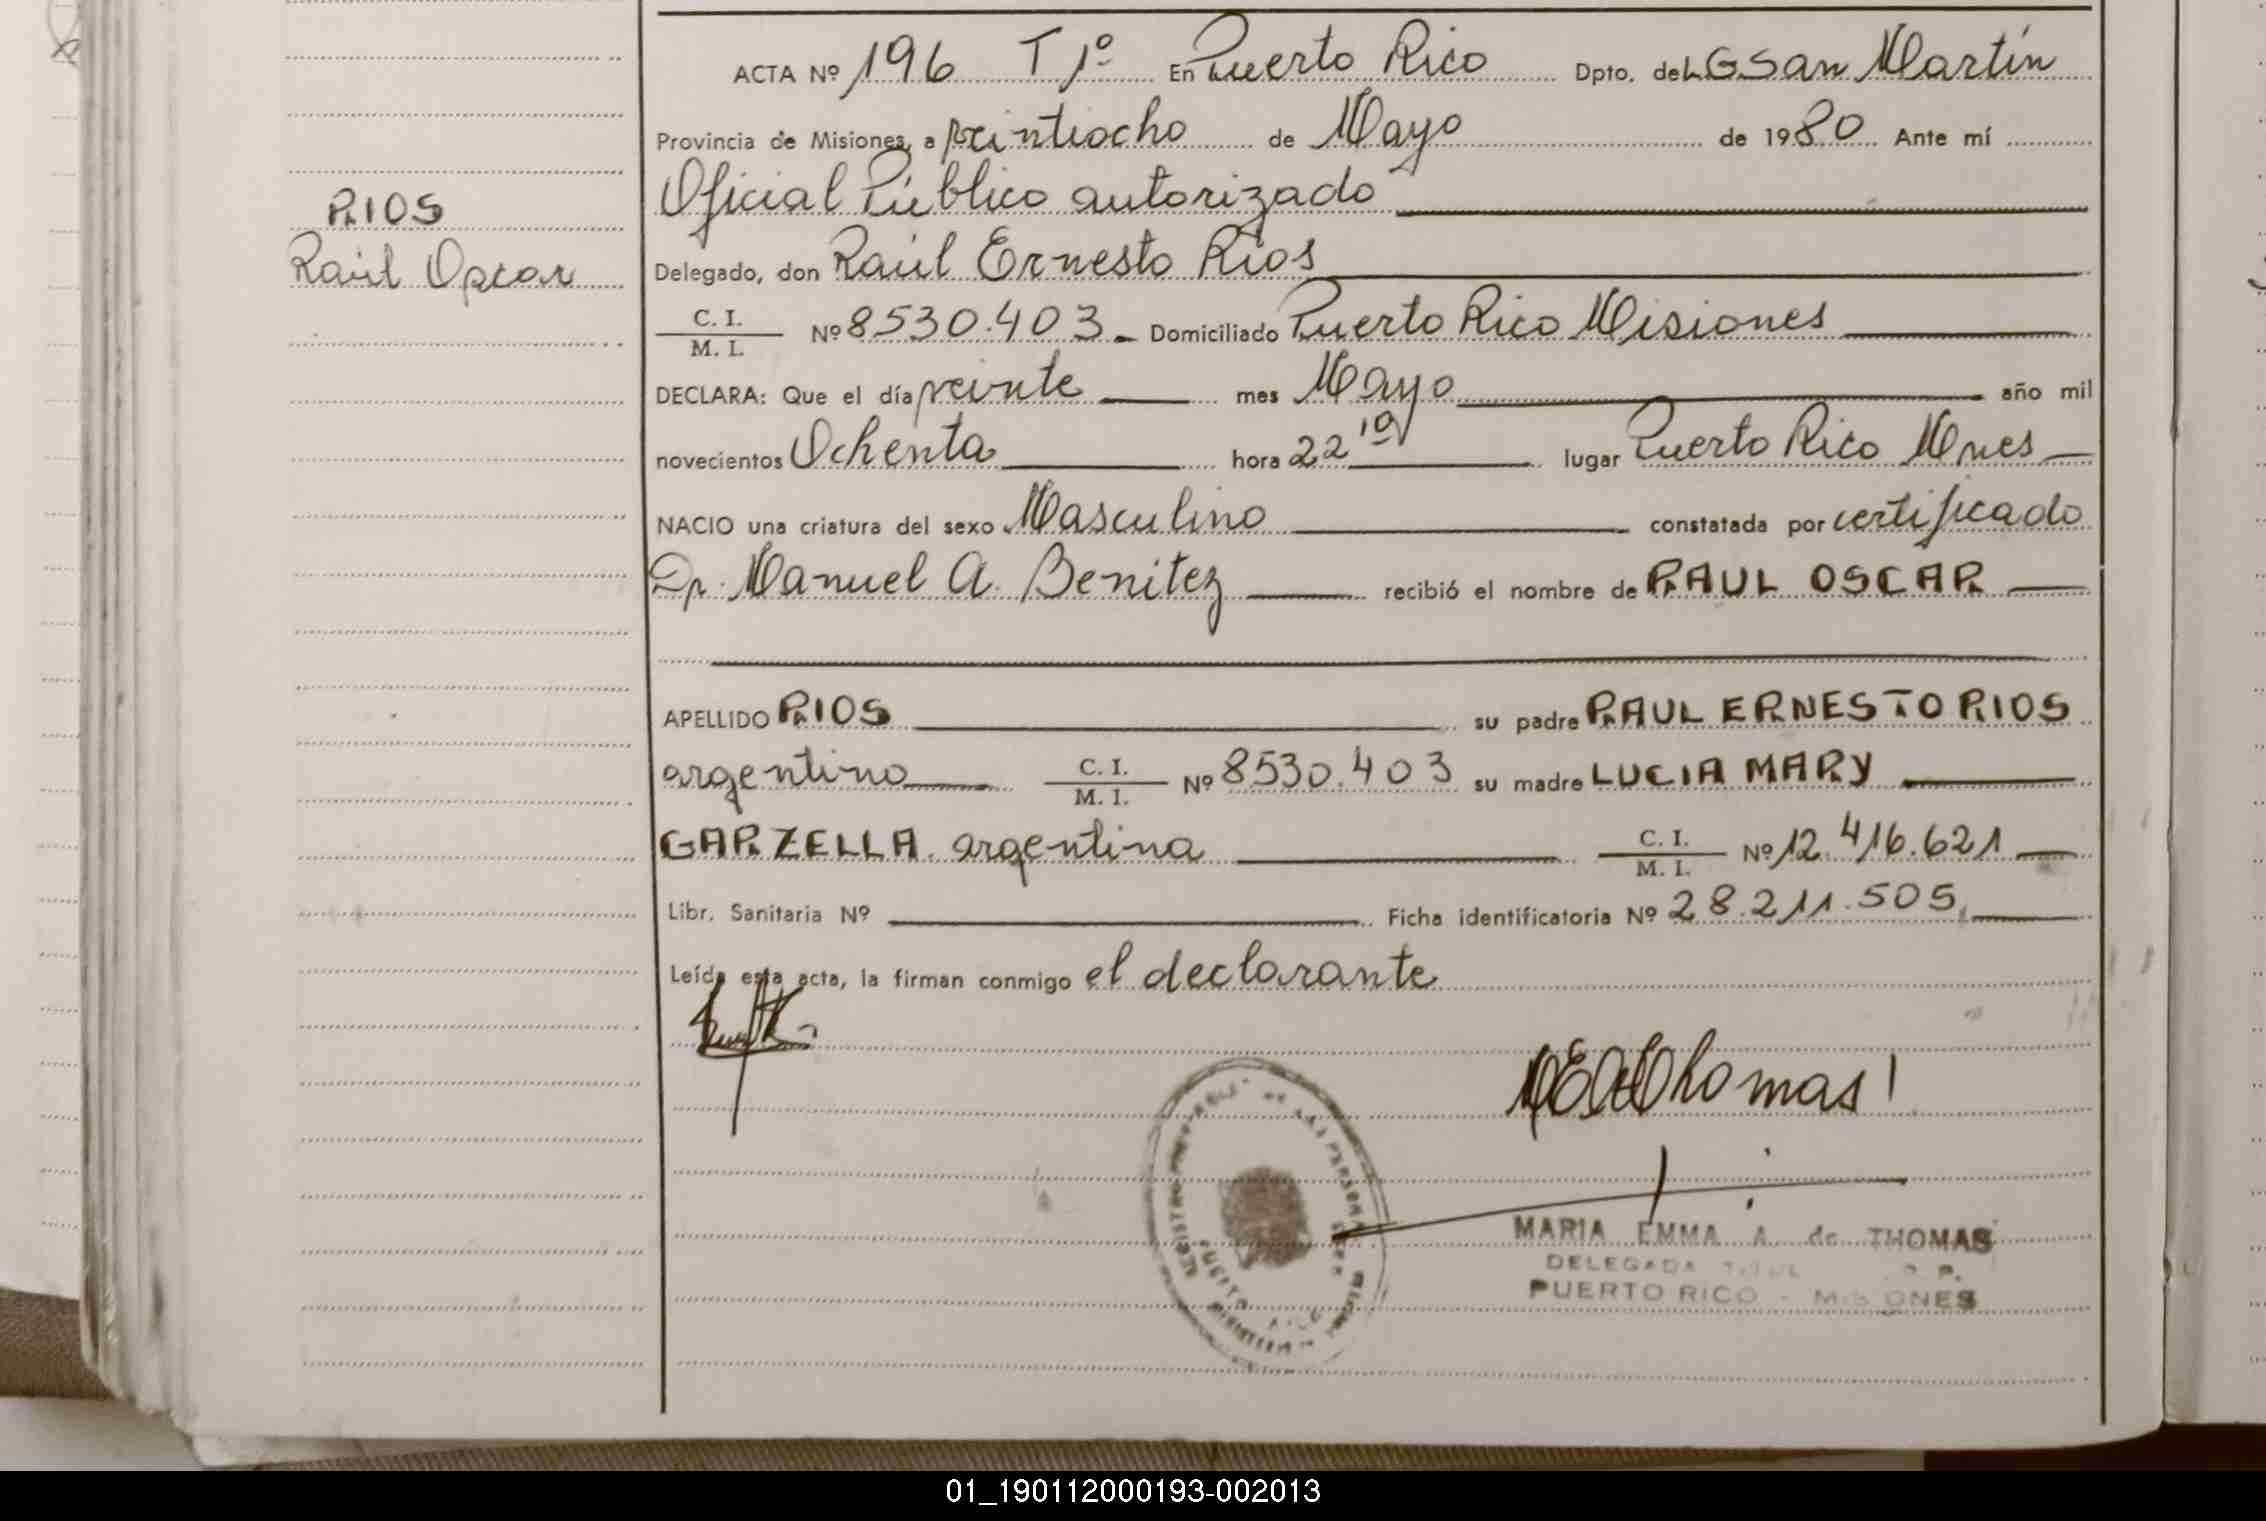 ACTA Nº 196 T 1º En Puerto Rico Dpto. de LGSan Martín
Provincia de Misiones, a veintiocho de Mayo de 1980 Ante mí
Oficial Público autorizado
RIOS
Delegado, don Raúl Ernesto Rios
Raúl Oscar
C. I. / M. I. Nº 8530.403 Domiciliado Puerto Rico Misiones
DECLARA: Que el día veinte mes Mayo año mil
novecientos Ochenta hora 22 10 lugar Puerto Rico Mnes
NACIO una criatura del sexo Masculino constatada por certificado
Dr. Manuel A. Benitez recibió el nombre de RAUL OSCAR
APELLIDO RIOS su padre RAUL ERNESTO RIOS
argentino C. I. / M. I. Nº 8530.403 su madre LUCIA MARY
GARZELLA argentina C. I. / M. I. Nº 12.416.621
Libr. Sanitaria Nº Ficha identificatoria Nº 28.211.505
Leída esta acta, la firman conmigo el declarante
Thomas
MARIA EMMA A. de THOMAS
DELEGADA
PUERTO RICO - MISIONES
01_190112000193-002013